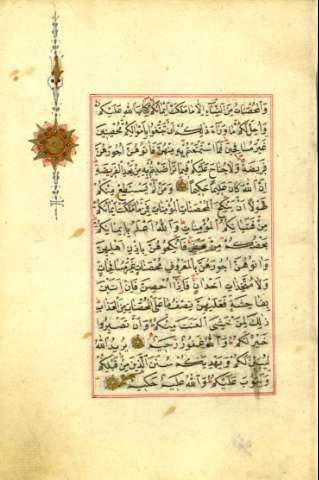 وَالْمُحْصَنَاتُ مِنَ النِّسَاءِ اِلَّا مَا مَلَكَتْ اَيْمَانُكُمْ كِتَابَ اللهِ عَلَيْكُمْ
وَاُحِلَّ لَكُمْ مَا وَرَاءَ ذٰلِكُمْ اَنْ تَبْتَغُوا بِاَمْوَالِكُمْ مُحْصِنِينَ
غَيْرَ مُسَافِحِينَ فَمَا اسْتَمْتَعْتُمْ بِهِ مِنْهُنَّ فَاٰتُوهُنَّ اُجُورَهُنَّ
فَرِيضَةً وَلَا جُنَاحَ عَلَيْكُمْ فِيمَا تَرَاضَيْتُمْ بِهِ مِنْ بَعْدِ الْفَرِيضَةِ
اِنَّ اللهَ كَانَ عَلِيمًا حَكِيمًا وَمَنْ لَمْ يَسْتَطِعْ مِنْكُمْ
طَوْلًا اَنْ يَنْكِحَ الْمُحْصَنَاتِ الْمُؤْمِنَاتِ فَمِنْ مَا مَلَكَتْ اَيْمَانُكُمْ
مِنْ فَتَيَاتِكُمُ الْمُؤْمِنَاتِ وَاللهُ اَعْلَمُ بِاِيمَانِكُمْ
بَعْضُكُمْ مِنْ بَعْضٍ فَانْكِحُوهُنَّ بِاِذْنِ اَهْلِهِنَّ
وَاٰتُوهُنَّ اُجُورَهُنَّ بِالْمَعْرُوفِ مُحْصَنَاتٍ غَيْرَ مُسَافِحَاتٍ
وَلَا مُتَّخِذَاتِ اَخْدَانٍ فَاِذَا اُحْصِنَّ فَاِنْ اَتَيْنَ
بِفَاحِشَةٍ فَعَلَيْهِنَّ نِصْفُ مَا عَلَى الْمُحْصَنَاتِ مِنَ الْعَذَابِ
ذٰلِكَ لِمَنْ خَشِيَ الْعَنَتَ مِنْكُمْ وَاَنْ تَصْبِرُوا
خَيْرٌ لَكُمْ وَاللهُ غَفُورٌ رَحِيمٌ يُرِيدُ اللهُ
لِيُبَيِّنَ لَكُمْ وَيَهْدِيَكُمْ سُنَنَ الَّذِينَ مِنْ قَبْلِكُمْ
وَيَتُوبَ عَلَيْكُمْ وَاللهُ عَلِيمٌ حَكِيمٌ